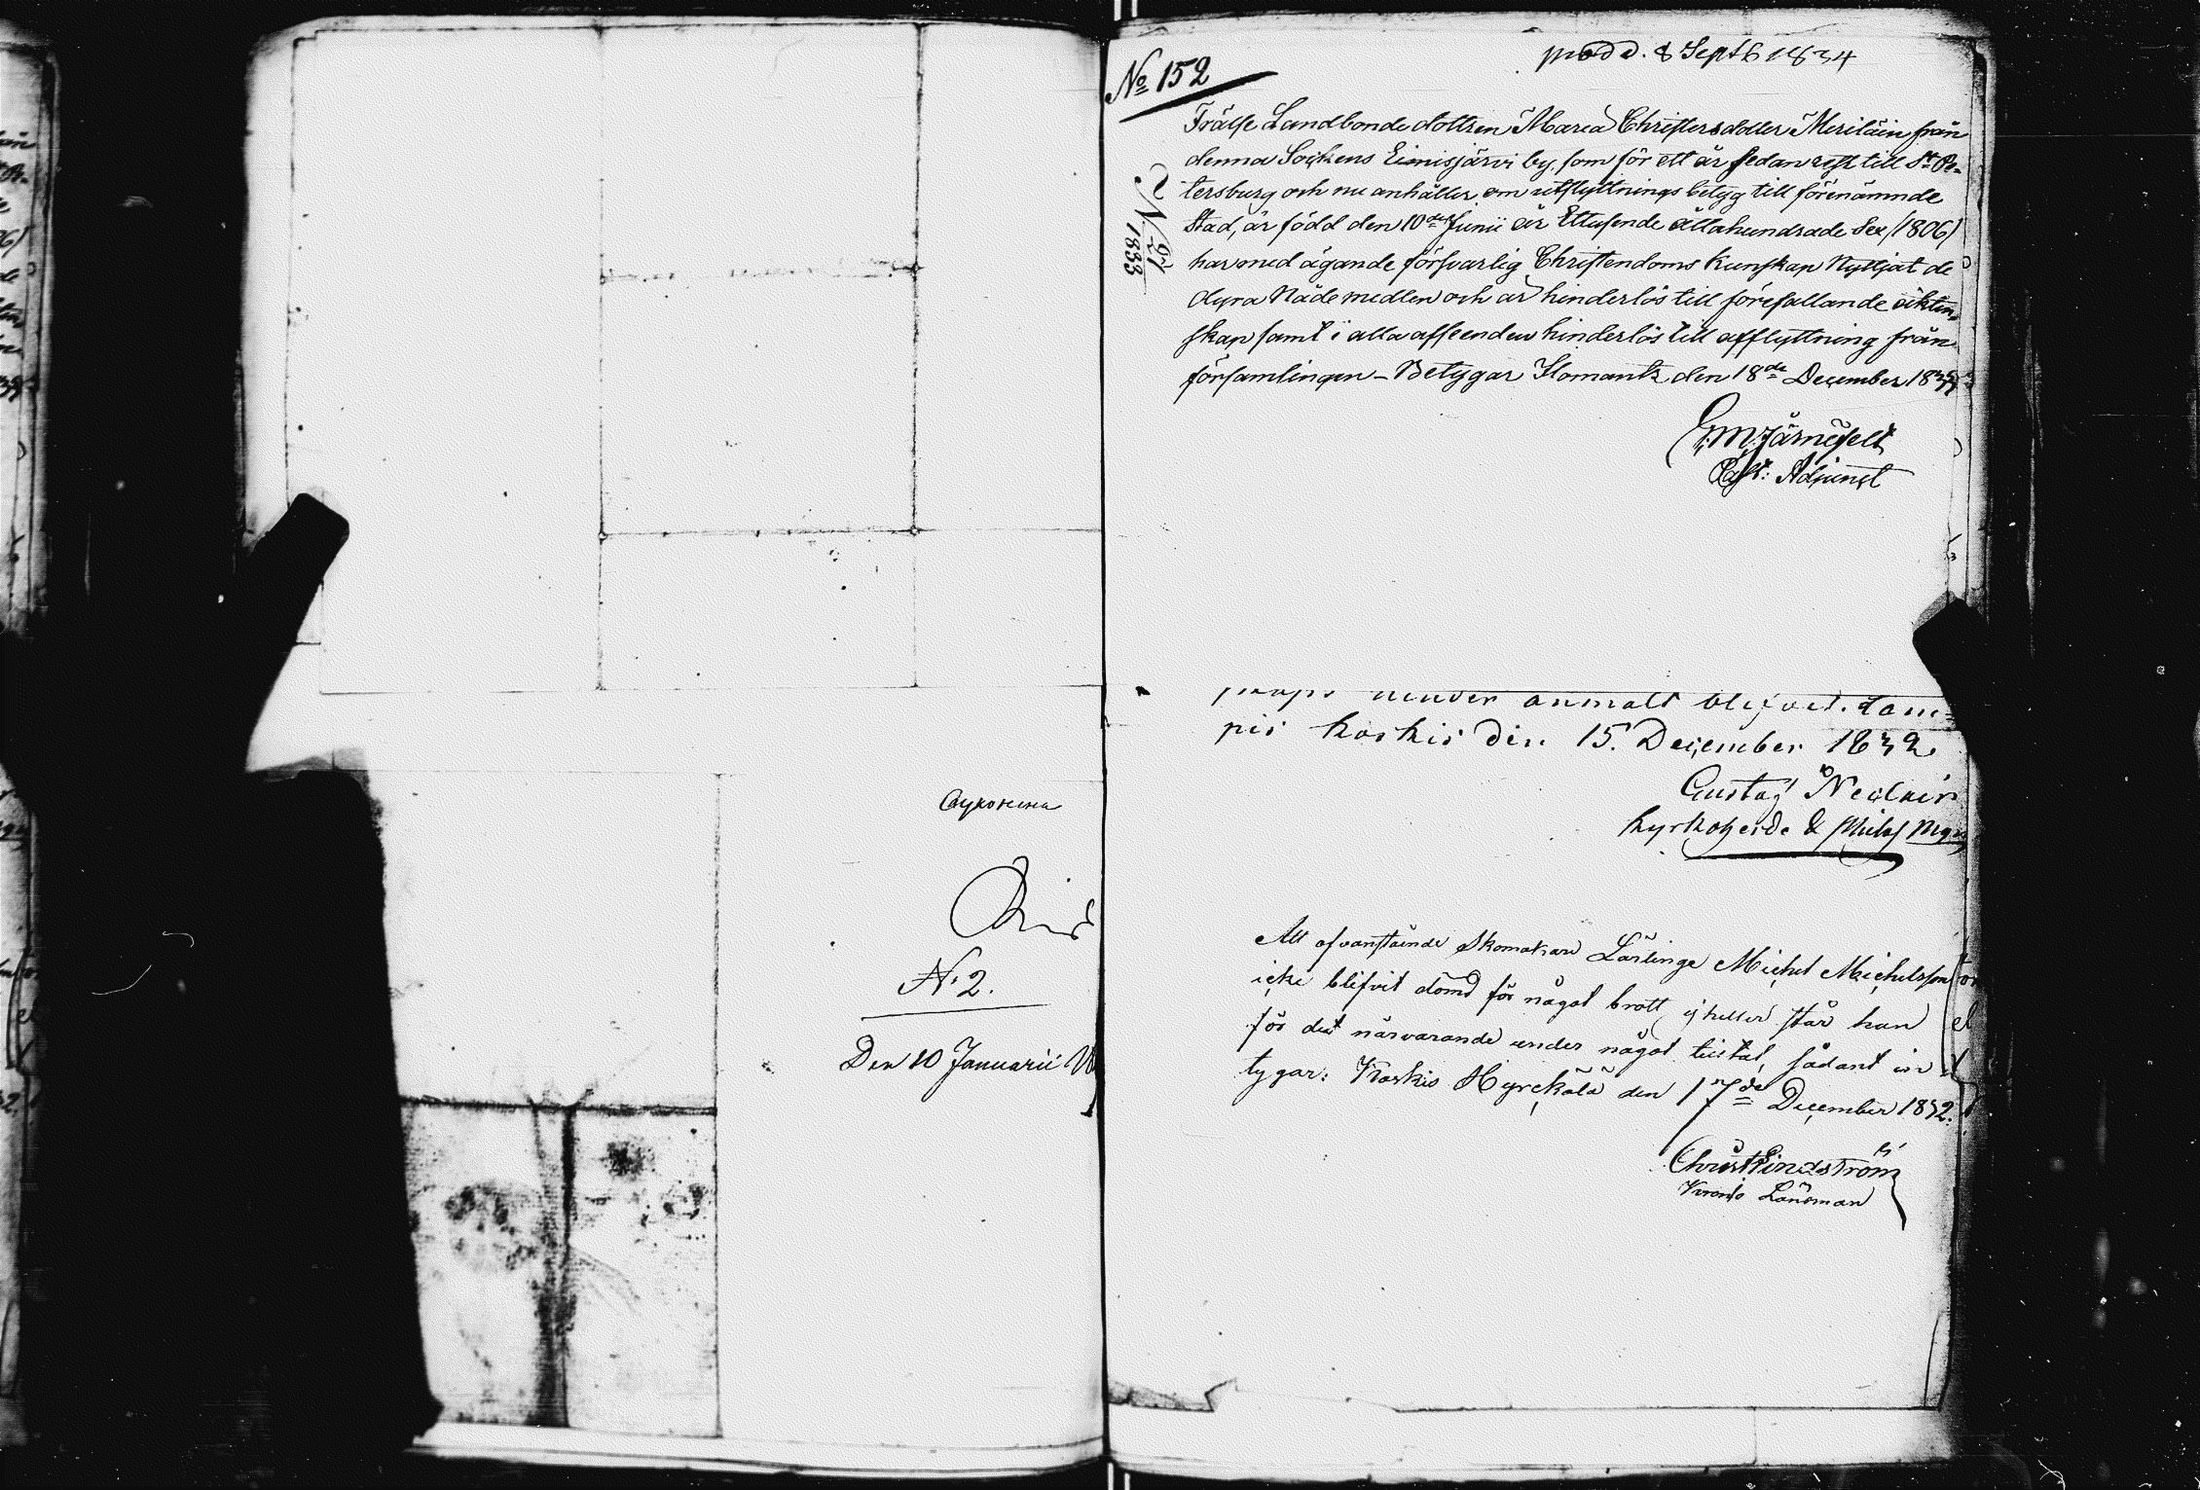 Сауконена
N. 2.
Den 10 Januarii
prod d. 8 Septb 1834
No 152
N 97
1833
Frälse Landbonde dottren Maria Christersdotter Meriläin från
denna Sockens Eimisjärvi by, som för ett år sedan rest till St Pe-
tersburg och nu anhåller om utflyttnings betyg till förenämnde
Stad, är född den 10de Junii år Ettusende åttahundrade Sex /1806/
har med ägande försvarlig Christendoms kunskap Nyttjat de
dyra Nådemedlen och är hinderlös till förefallande äkten-
skap samt i alla afseenden hinderlös till afflyttning från
församlingen - Betygar Ilomants den 18de December 1833
G.M. Järnefelt
Past: Adjunct
hinder anmält blifvit. Tam=
pis Koskis den 15. December 1832.
Gustaf
Kyrkoherde &
Att ofvanstående Skomakare Lärlinge Michel Michelsson
icke blifvit dömd för något brott, ej heller står han
för det närvarande under något tilltal, sådant in
tygar: Koskis Hyrckälä den 17de December 1832.
Christ Lindström
Krono Länsman